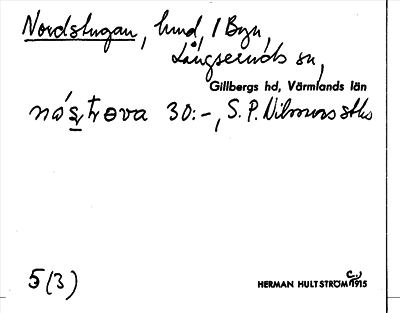 Nordstugan, hmd, i Byn,
Långseruds sn,
Gillbergs hd, Värmlands län
30:-, S. P. Nilssons sths
5(3)
HERMAN HULTSTRÖM c. 1915